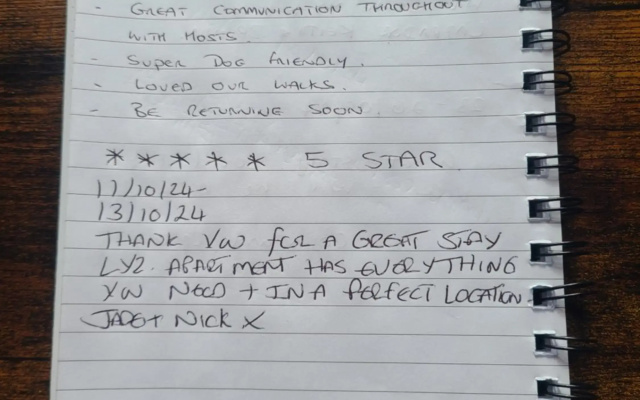 - GREAT COMMUNICATION THROUGHOUT
WITH HOSTS.
- SUPER DOG FRIENDLY.
- LOVED OUR WALKS.
- BE RETURNING SOON.
* * * * * 5 STAR
11/10/24-
13/10/24
THANK YOU FOR A GREAT STAY
APARTMENT HAS EVERYTHING
YOU NEED + IN A PERFECT LOCATION.
JADE + NICK X